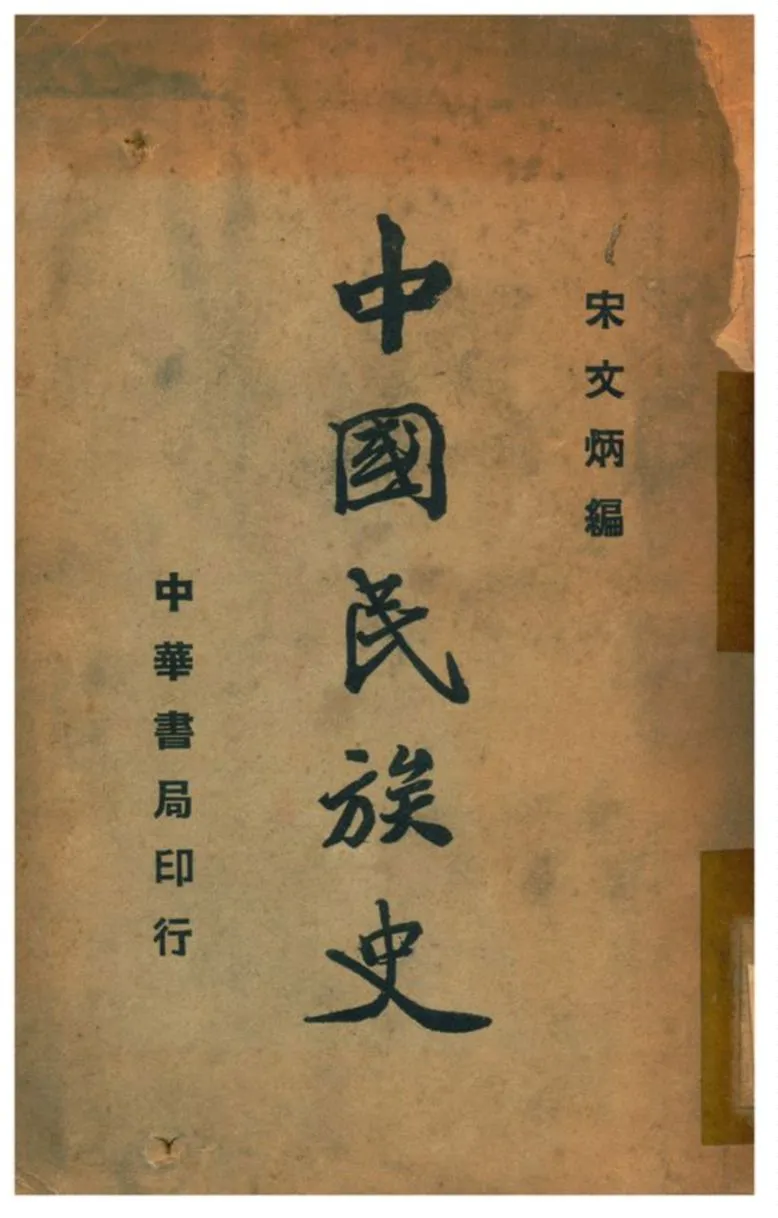 宋文炳編
中國民族史
中華書局印行